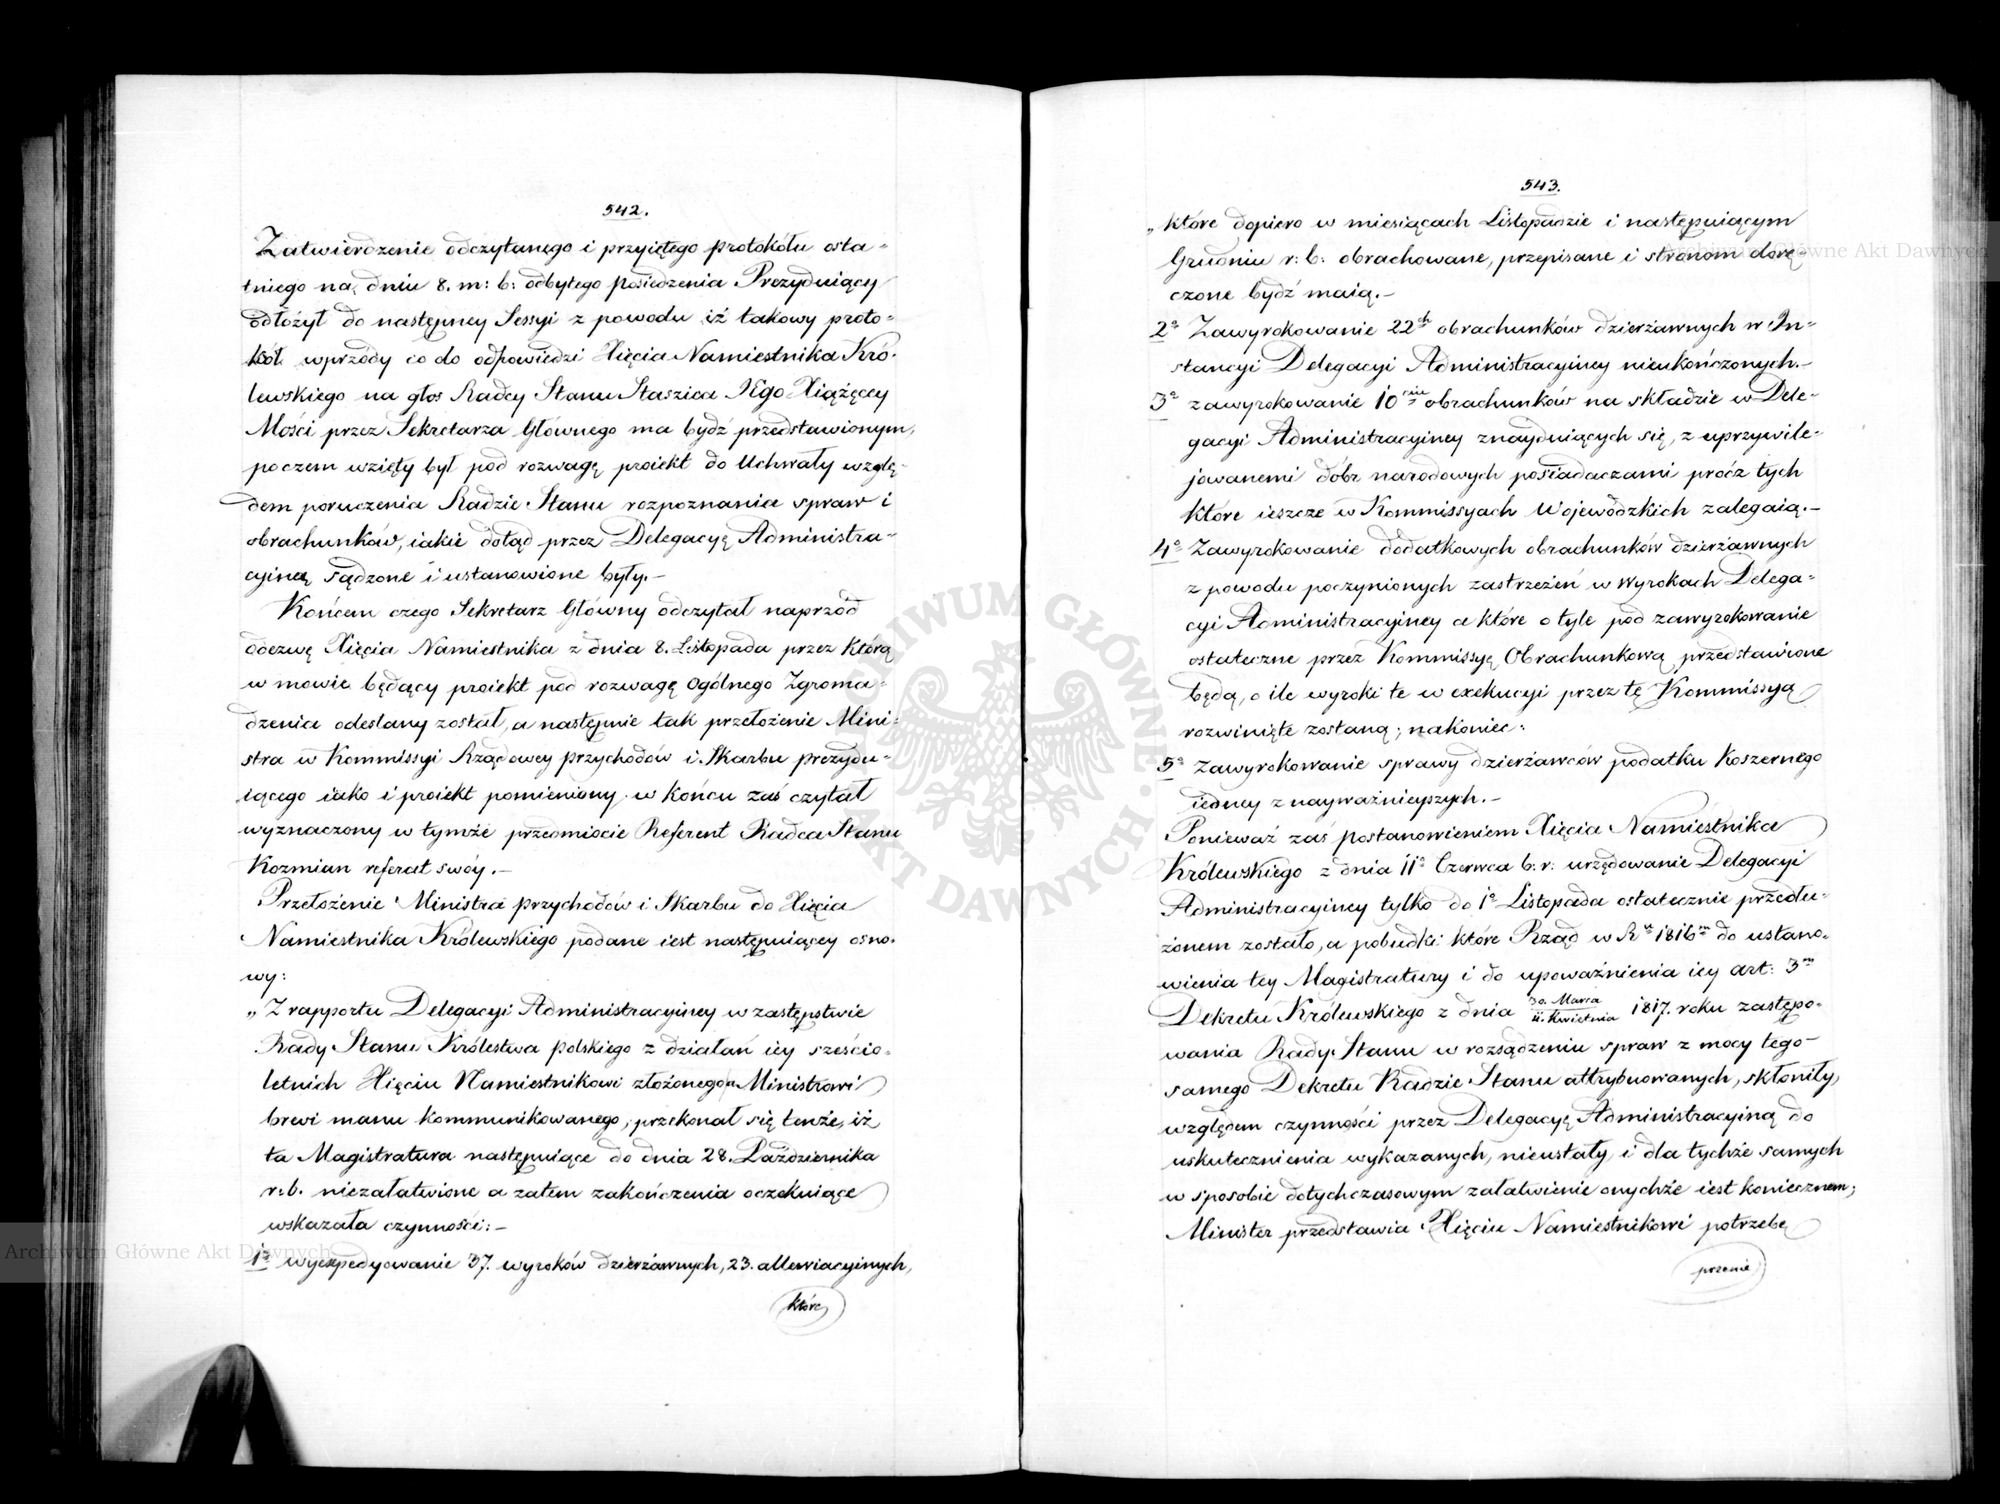 542.
Zatwierdzenie odczytanego i przyiętego protokółu osta-
tniego na dniu 8. m: b: odbytego posiedzenia Prezyduiący
odłożył do następney Sessyi z powodu iż takowy proto-
kół wprzódy co do odpowiedzi Xięcia Namiestnika Kró-
lewskiego na głos Radcy Stanu Staszica JEgo Xiążęcey
Mości przez Sekretarza Głównego ma bydź przedstawionym,
poczem wzięty był pod rozwagę proiekt do Uchwały wzglę-
dem poruczenia Radzie Stanu rozpoznania spraw i
obrachunków, iakie dotąd przez Delegacyę Administra-
cyiną sądzone i ustanowione były.-
Końcem czego Sekretarz Główny odczytał naprzód
odezwę Xięcia Namiestnika z dnia 8. Listopada przez którą
w mowie będący proiekt pod rozwagę Ogólnego Zgroma-
dzenia odesłany został, a następnie tak przełożenie Mini-
stra w Kommissyi Rządowey przychodów i Skarbu prezydu-
iącego iako i proiekt pomieniony. w końcu zaś czytał
wyznaczony w tymże przedmiocie Referent Radca Stanu
Kozmian referat swóy.-
Przełożenie Ministra przychodów i Skarbu do Xięcia
Namiestnika Królewskiego podane iest następuiącey osno-
wy:
„Z rapportu Delegacyi Administracyiney w zastępstwie
Rady Stanu Królestwa polskiego z działań iey sześcio-
letnich Xięciu Namiestnikowi złożonego a Ministrowi
brevi manu kommunikowanego, przekonał się tenże, iż
ta Magistratura następuiące do dnia 28. Października
r. b. niezałatwione a zatem zakończenia oczekuiące
wskazała czynności:-
1o wyexpedyowanie 37. wyroków dzierżawnych, 23. allewiacyinych,
które
543.
„które dopiero w miesiącach Listopadzie i następuiącym
Grudniu r: b: obrachowane, przepisane i stronom dorę-
czone bydź maią.-
2o Zawyrokowanie 22ch obrachunków dzierżawnych w In-
stancyi Delegacyi Administracyiney nieukończonych.-
3o zawyrokowanie 10ciu obrachunków na składzie w Dele-
gacyi Administracyiney znayduiących się, z uprzywile-
jowanemi dóbr narodowych posiadaczami prócz tych
które ieszcze w Kommissyach Wojewódzkich zalegaią.-
4o Zawyrokowanie dodatkowych obrachunków dzierżawnych
z powodu poczynionych zastrzeżeń w Wyrokach Delega-
cyi Administracyiney a które o tyle pod zawyrokowanie
ostateczne przez Kommissyą Obrachunkową przedstawione
będą, o ile wyroki te w exekucyi przez tę Kommissyą
rozwinięte zostaną; nakoniec:
5o Zawyrokowanie sprawy dzierżawców podatku Koszernego
iedney z nayważnieyszych.-
Ponieważ zaś postanowieniem Xięcia Namiestnika
Królewskiego z dnia 11o Czerwca b: r: urzędowanie Delegacyi
Administracyiney tylko do 1o Listopada ostatecznie przedłu-
żonem zostało, a pobudki które Rząd w Ru 1816m do ustano-
wienia tey Magistratury i do upoważnienia iey art: 3m
Dekretu Królewskiego z dnia 30. Marca / 11. Kwietnia 1817. roku zastępo-
wania Rady Stanu w rozsądzeniu spraw z mocy tego-
samego Dekretu Radzie Stanu attrybuowanych, skłoniły,
względem czynności przez Delegacyę Administracyiną do
uskutecznienia wykazanych, nieustały, i dla tychże samych
w sposobie dotychczasowym załatwienie onychże iest koniecznem;
Minister przedstawia Xięciu Namiestnikowi potrzebę
Archiwum Główne Akt Dawnych
Archiwum Główne Akt Dawnych
ARCHIWUM GŁÓWNE AKT DAWNYCH